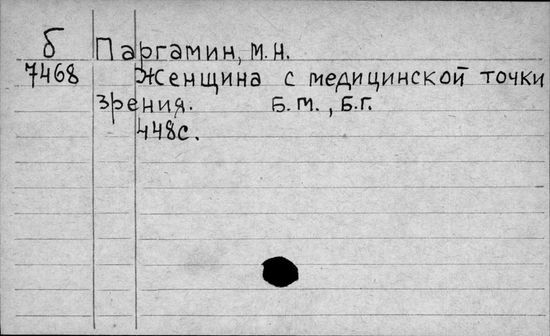 б Паргамин, М.Н.
7468 Женщина с медицинской точки
зрения. Б.М., Б.Г.
448с.